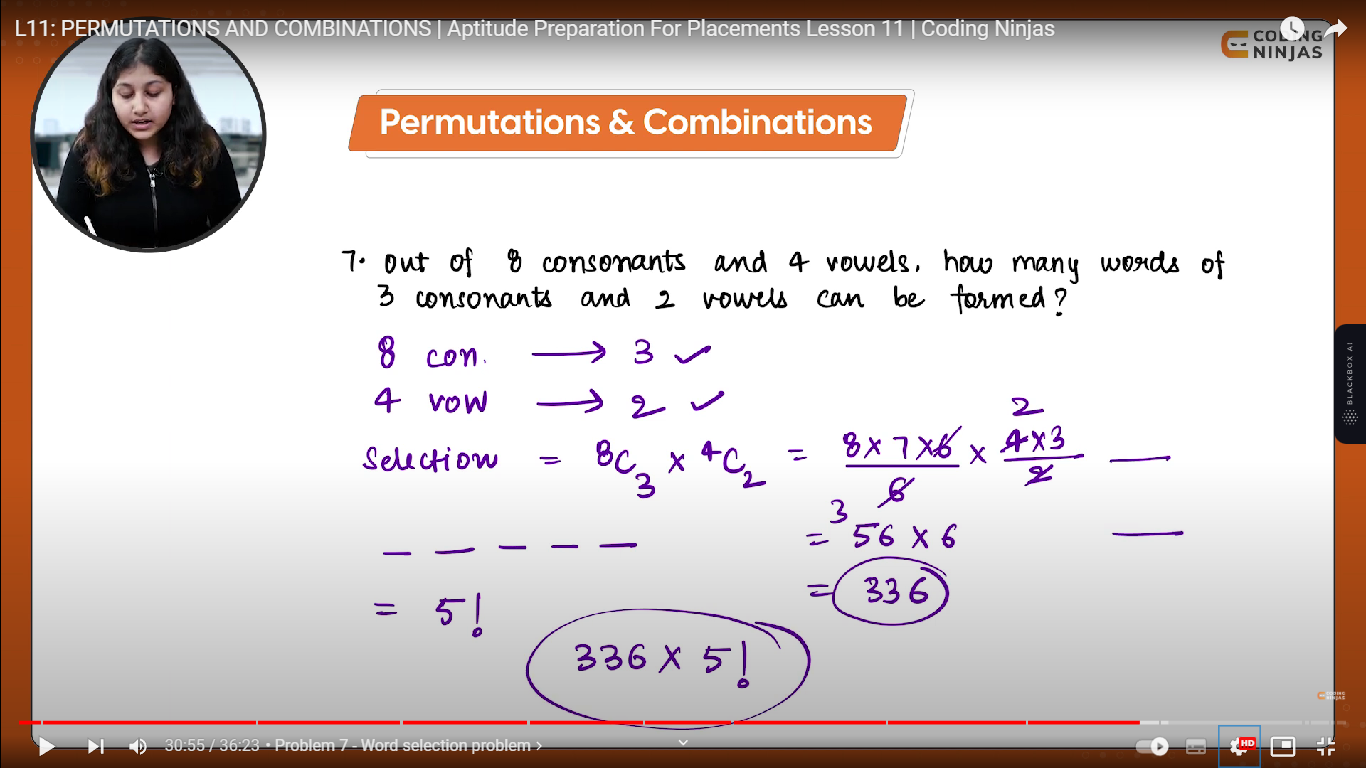 L11: PERMUTATIONS AND COMBINATIONS | Aptitude Preparation For Placements Lesson 11 | Coding Ninjas
CODING
NINJAS
Permutations & Combinations
7. out of 8 consonants and 4 vowels, how many words of
3 consonants and 2 vowels can be formed?
8 con. → 3 ✓
4 vow → 2 ✓
2
Selection = ⁸C₃ × ⁴C₂ = 8×7×6/6 × 4×3/2
3
= 56 × 6
= 336
= 5!
336 × 5!
BLACKBOX AI
CODING
NINJAS
30:55 / 36:23 • Problem 7 - Word selection problem ›
HD